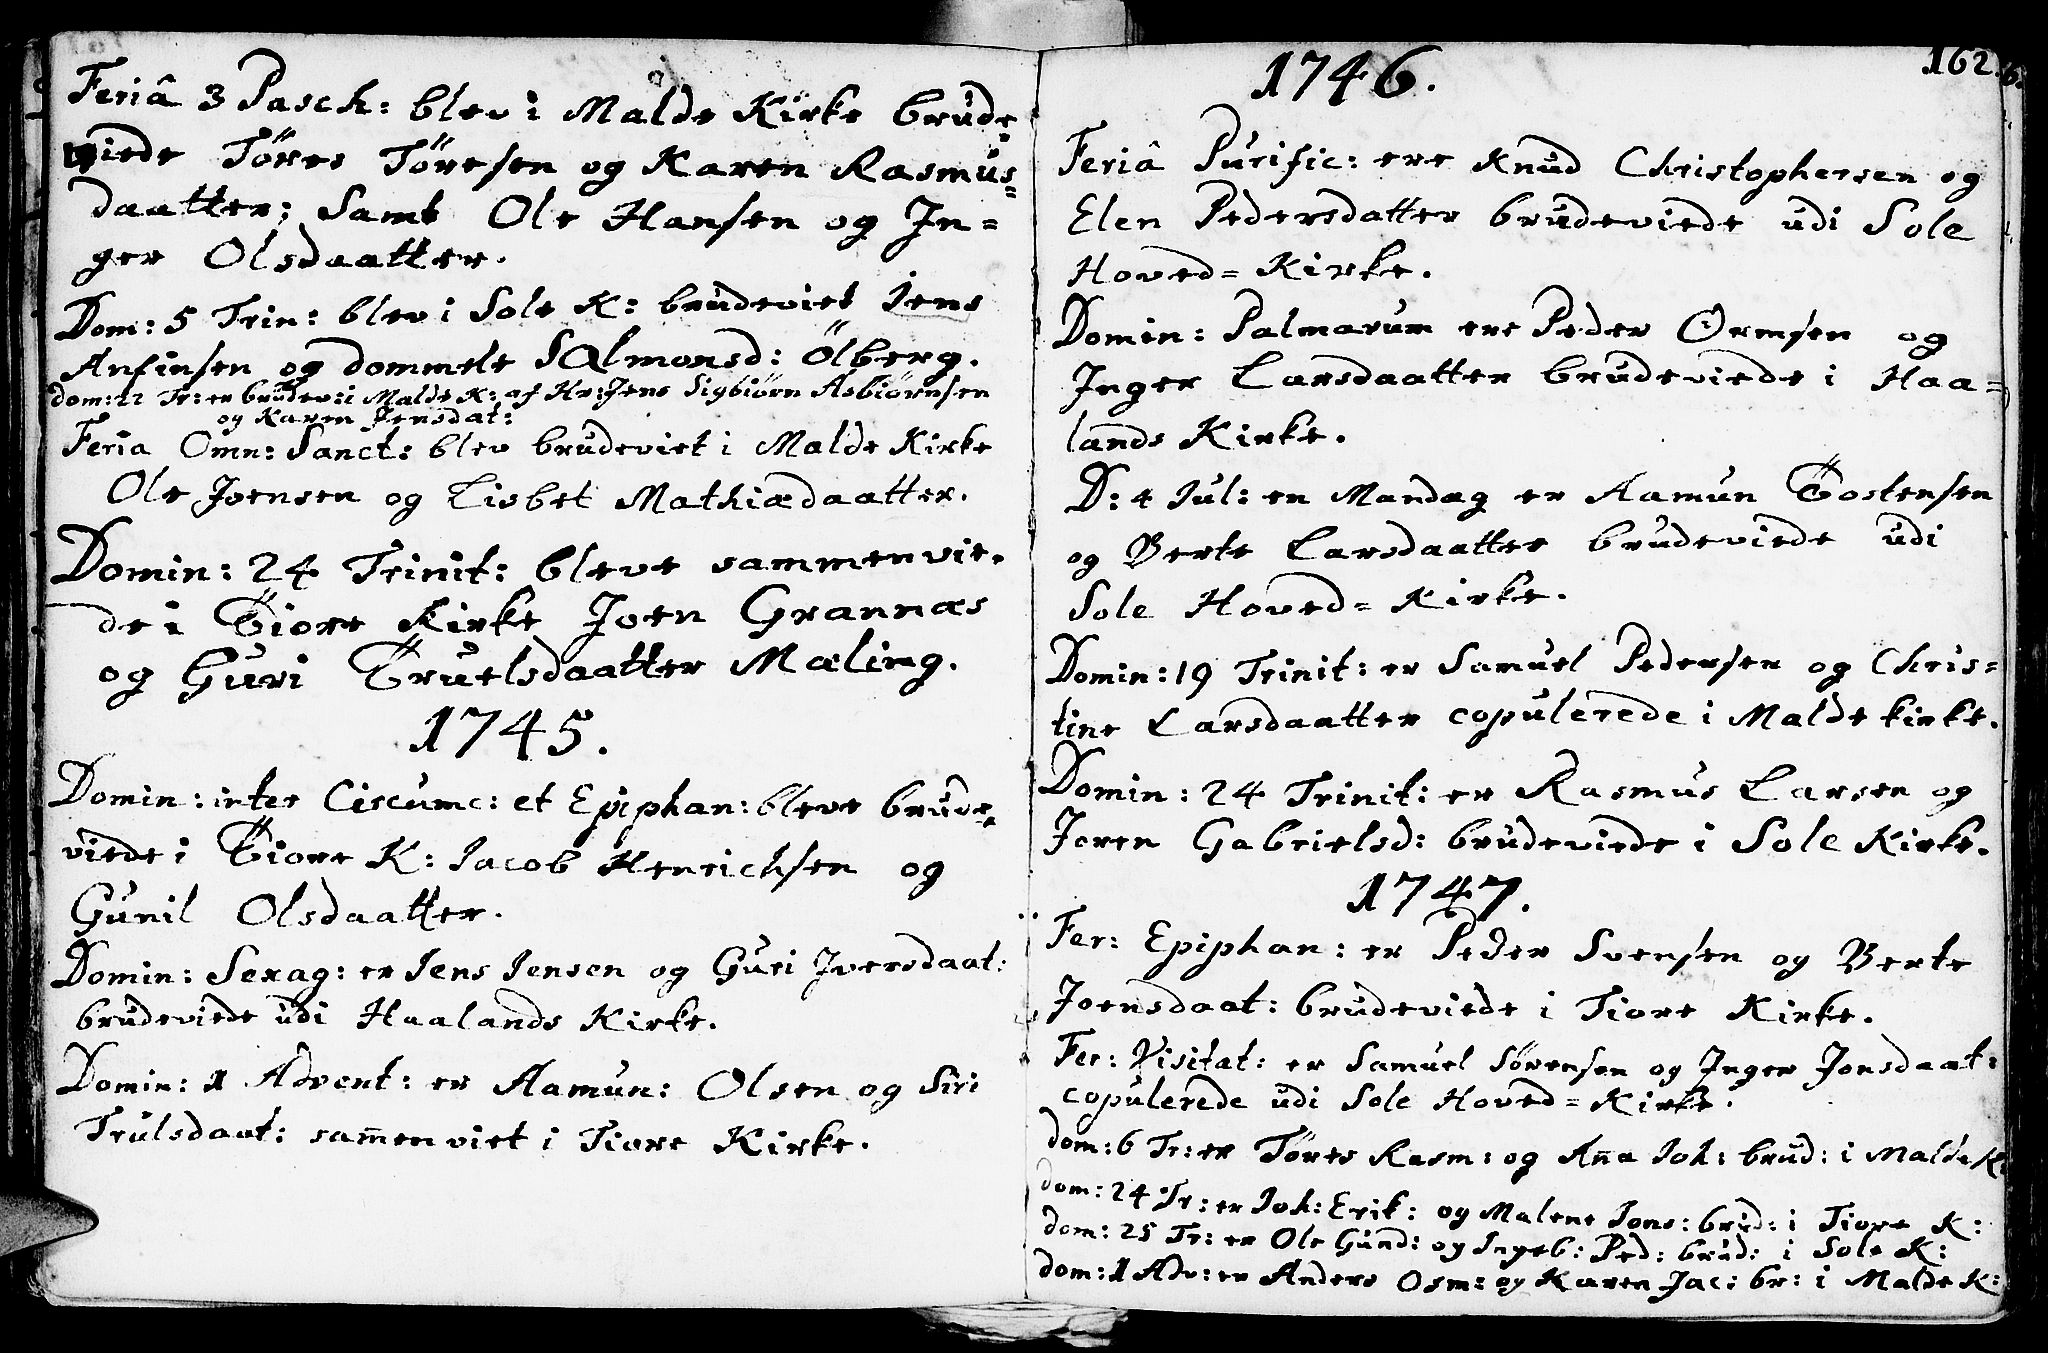 Feriâ 3 Pasch: blev i Malde Kirke brude-
viede Töres Töresen og Karen Rasmus=
daatter; Samt Ole Hansen og In=
ger Olsdaatter.
Dom: 5 Trin: blev i Sole K: brudeviet Jens
Anfinsen og dommele SAlmonsd: Ölberg.
dom: 22 Tr: er brudev: i Malde K: af Hr: Jens Sigbiörn Asbiörnsen
og Karen Jensdat:
Feria Omn: Sanct: blev brudeviet i Malde Kirke
Ole Joensen og Lisbet Mathiædaatter.
Domin: 24 Trinit: bleve sammenvie-
de i Tiore Kirke Joen Grannæs
og Guri Truelsdaatter Mæling.
1745.
Domin: inter Circumc: et Epiphan: bleve brude-
viede i Tiore K: Jacob Henrichsen og
Gunil Olsdaatter.
Domin: Sexag: er Jens Jensen og Guri Iversdaat:
brudeviede udi Haalands Kirke.
Domin: 1 Advent: er Aamun: Olsen og Siri
Trulsdaat: sam̅en viet i Tiore Kirke.
162.
1746.
Feriâ Purific: ere Knud Christophersen og
Elen Pedersdatter brudeviede udi Sole
Hoved=Kirke.
Domin: Palmarum ere Peder Ormsen og
Inger Larsdaatter brudeviede i Haa=
lands Kirke.
D: 4 Jul: en Mandag er Aamun Tostensen
og Berte Larsdaatter brudeviede udi
Sole Hoved=Kirke.
Domin: 19 Trinit: er Samuel Pedersen og Chris=
tine Larsdaatter copulerede i Malde kirke.
Domin: 24 Trinit: er Rasmus Larsen og
Joren Gabrielsd: brudeviede i Sole Kirke.
1747.
Fer: Epiphan: er Peder Svensen og Berte
Joensdaat: brudeviede i Tiore Kirke.
Fer: Visitat: er Samuel Sörensen og Inger Jonsdaat:
copulerede udi Sole Hoved=Kirke.
dom: 6 Tr: er Töres Rasm: og An̅a Joh: brud: i Malde K:
dom: 24 Tr: er Joh: Erik: og Malene Jons: brud: i Tiore K:
dom: 25 Tr: er Ole Gund: og Ingeb: Ped: brud: i Sole K:
dom: 1 Adv: er Anders Osm: og Karen Jac: br: i Malde K: